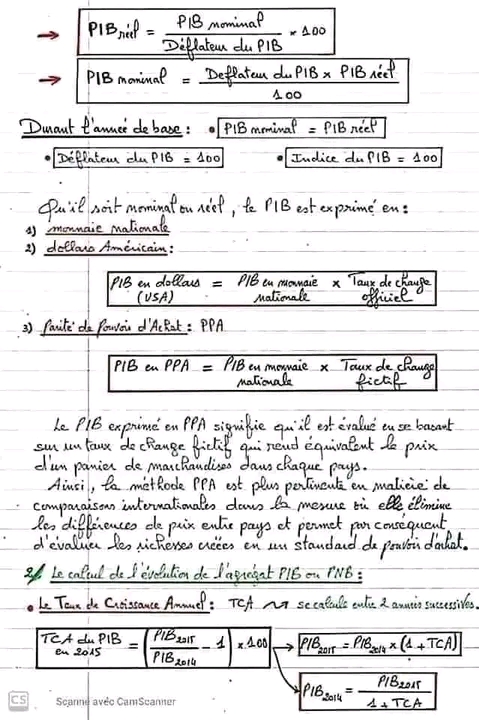 → PIB réel = PIB nominal / Déflateur du PIB × 100
→ PIB nominal = Deflateur du PIB × PIB réel / 100
Durant l'année de base : • PIB nominal = PIB réel
• Déflateur du PIB = 100 • Indice du PIB = 100
Qu'il soit nominal ou réel, le PIB est exprimé en :
1) monnaie nationale
2) dollars Américain :
PIB en dollars (USA) = PIB en monnaie nationale × Taux de change officiel
3) Parité de Pouvoir d'Achat : PPA
PIB en PPA = PIB en monnaie nationale × Taux de change fictif
Le PIB exprimé en PPA signifie qu'il est évalué en se basant
sur un taux de change fictif qui rend équivalent le prix
d'un panier de marchandises dans chaque pays.
Ainsi, la méthode PPA est plus pertinente en matière de
comparaisons internationales dans la mesure où elle élimine
les différences de prix entre pays et permet par conséquent
d'évaluer les richesses créées en un standard de pouvoir d'achat.
2/ Le calcul de l'évolution de l'agrégat PIB ou PNB :
• Le Taux de Croissance Annuel : TCA → se calcule entre 2 années successives.
TCA du PIB en 2015 = (PIB2015 / PIB2014 - 1) × 100 → PIB2015 = PIB2014 × (1 + TCA)
→ PIB2014 = PIB2015 / 1 + TCA
CS Scanné avec CamScanner